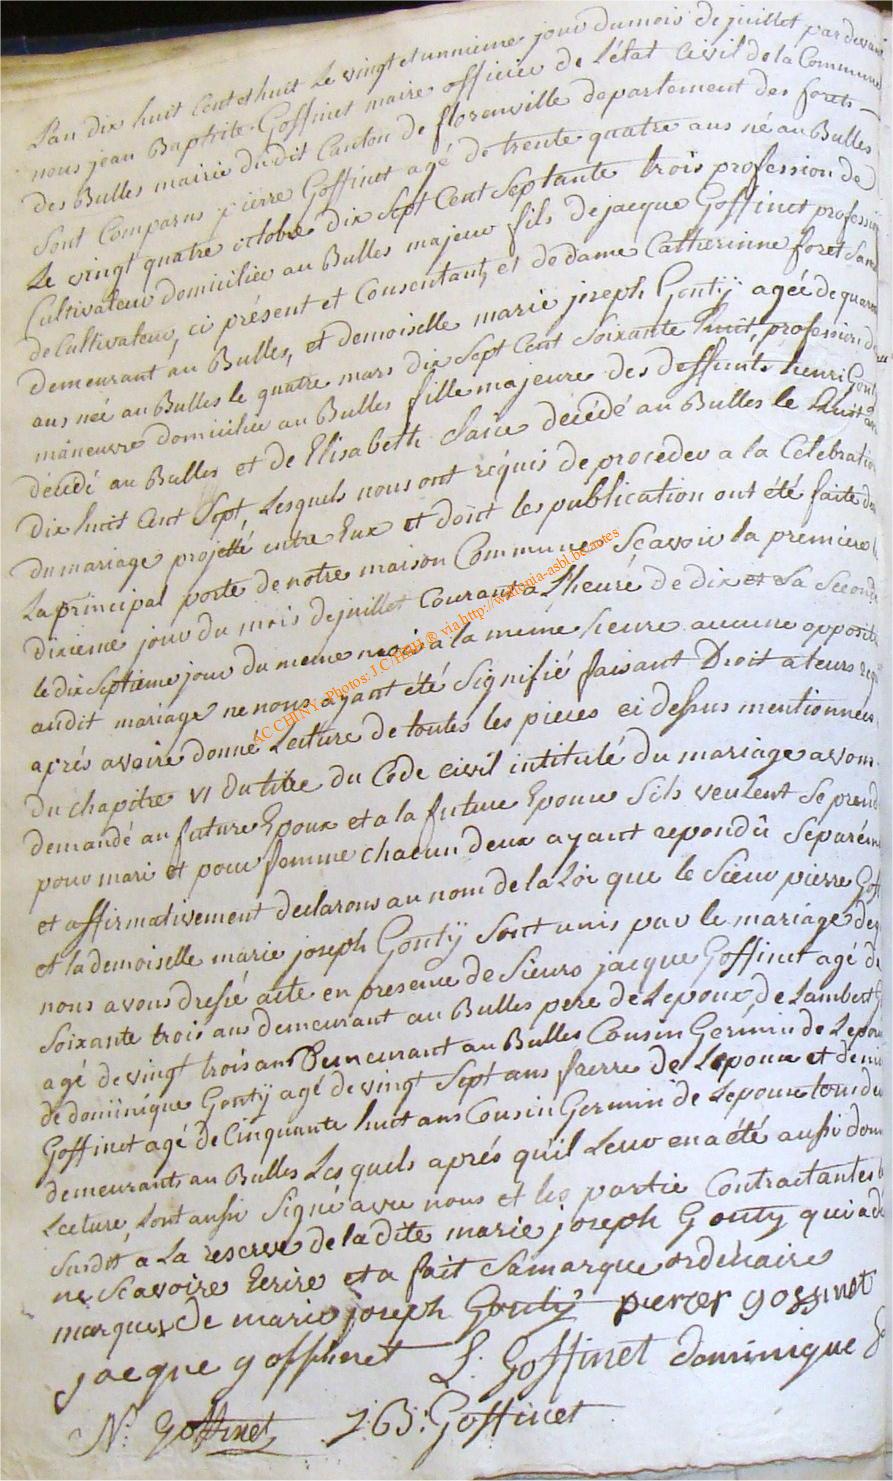 L'an dix huit Cent et huit Le vingt et unnieme jour du mois de juillet par devant
nous jean Baptiste Goffinet maire officier de L'état Civil de la Commune
des Bulles mairie dudit Canton de florenville departement des forets
Sont Comparus pierre Goffinet agé de trente quatre ans né au Bulles
Le vingt quatre octobre dix Sept Cent Septante trois profession de
Cultivateur domicilier au Bulles majeur fils de jacque Goffinet profession
de Cultivateur, ci présent et Consentant, et de dame Catherinne foret Sans
demeurant au Bulles, et demoiselle marie joseph Gontÿ agée de quarante
ans née au Bulles le quatre mars dix Sept Cent Soixante huit, profession de
maneuvre domiciliee au Bulles fille majeure des deffunts henri Gonty
décédé au Bulles et de Elisabeth décédé au Bulles le huit
dix huit Cent Sept, Lesquels nous ont réquis de proceder a la Célébration
du mariage projetté entre Eux et dont les publication ont été faite
La principal porte de notre maison Commune Scavoir la premiere
dixieme jour du mois de juillet Courant a L'heure de dix et La Seconde
le dix Septieme jour du meme mois à la même heure aucune opposition
audit mariage ne nous ayant été Signifié faisant Droit a leurs
aprés avoire donné Lecture de toutes les pieces ci dessus mentionnées
du chapitre VI du titre du Code civil intitulé du mariage avons
demandé au future Epoux et a la future Epouse Sils veulent Se prendre
pour mari et pour femme chacun deux ayant repondû Separément
et affirmativement declarons au nom de la Loi que le Sieur pierre Goff
et la demoiselle marie joseph Gontÿ Sont unis par le mariage de
nous avons dressé acte en presence de Sieurs jacque Goffinet agé de
Soixante trois ans demeurant au Bulles pere de Lepoux, de Lambert
agé de vingt trois ans Demeurant au Bulles Cousin Germin de Lepoux
de dominique Gontÿ agé de vingt Sept ans frerre de Lepouse et de
Goffinet agé de Cinquante huit ans Cousin Germin de Lepouse tous
demeurants au Bulles Les quels aprés qu'il Leur en a été aussi donné
Lecture, Lont aussi Signé avec nous et les partie Contractantes
Susdit a La reserve de la dite marie joseph Gonty qui a
ne Scavoire Ecrire et a fait Sa marque ordénaire
marque x de marie joseph Gontÿ pierer goffinet
jacque goffhinet L. Goffinet dominique
N. Goffinet J B. Goffinet
AC CHINY - Photos: J.C. ® via http://wallonia-asbl.be/actes